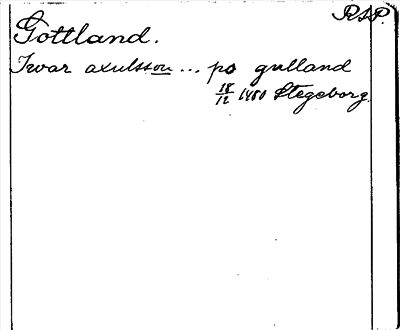 R.S.P.
Gottland.
Iwar axulsson ... po gulland
18/12 1480 Stegeborg.